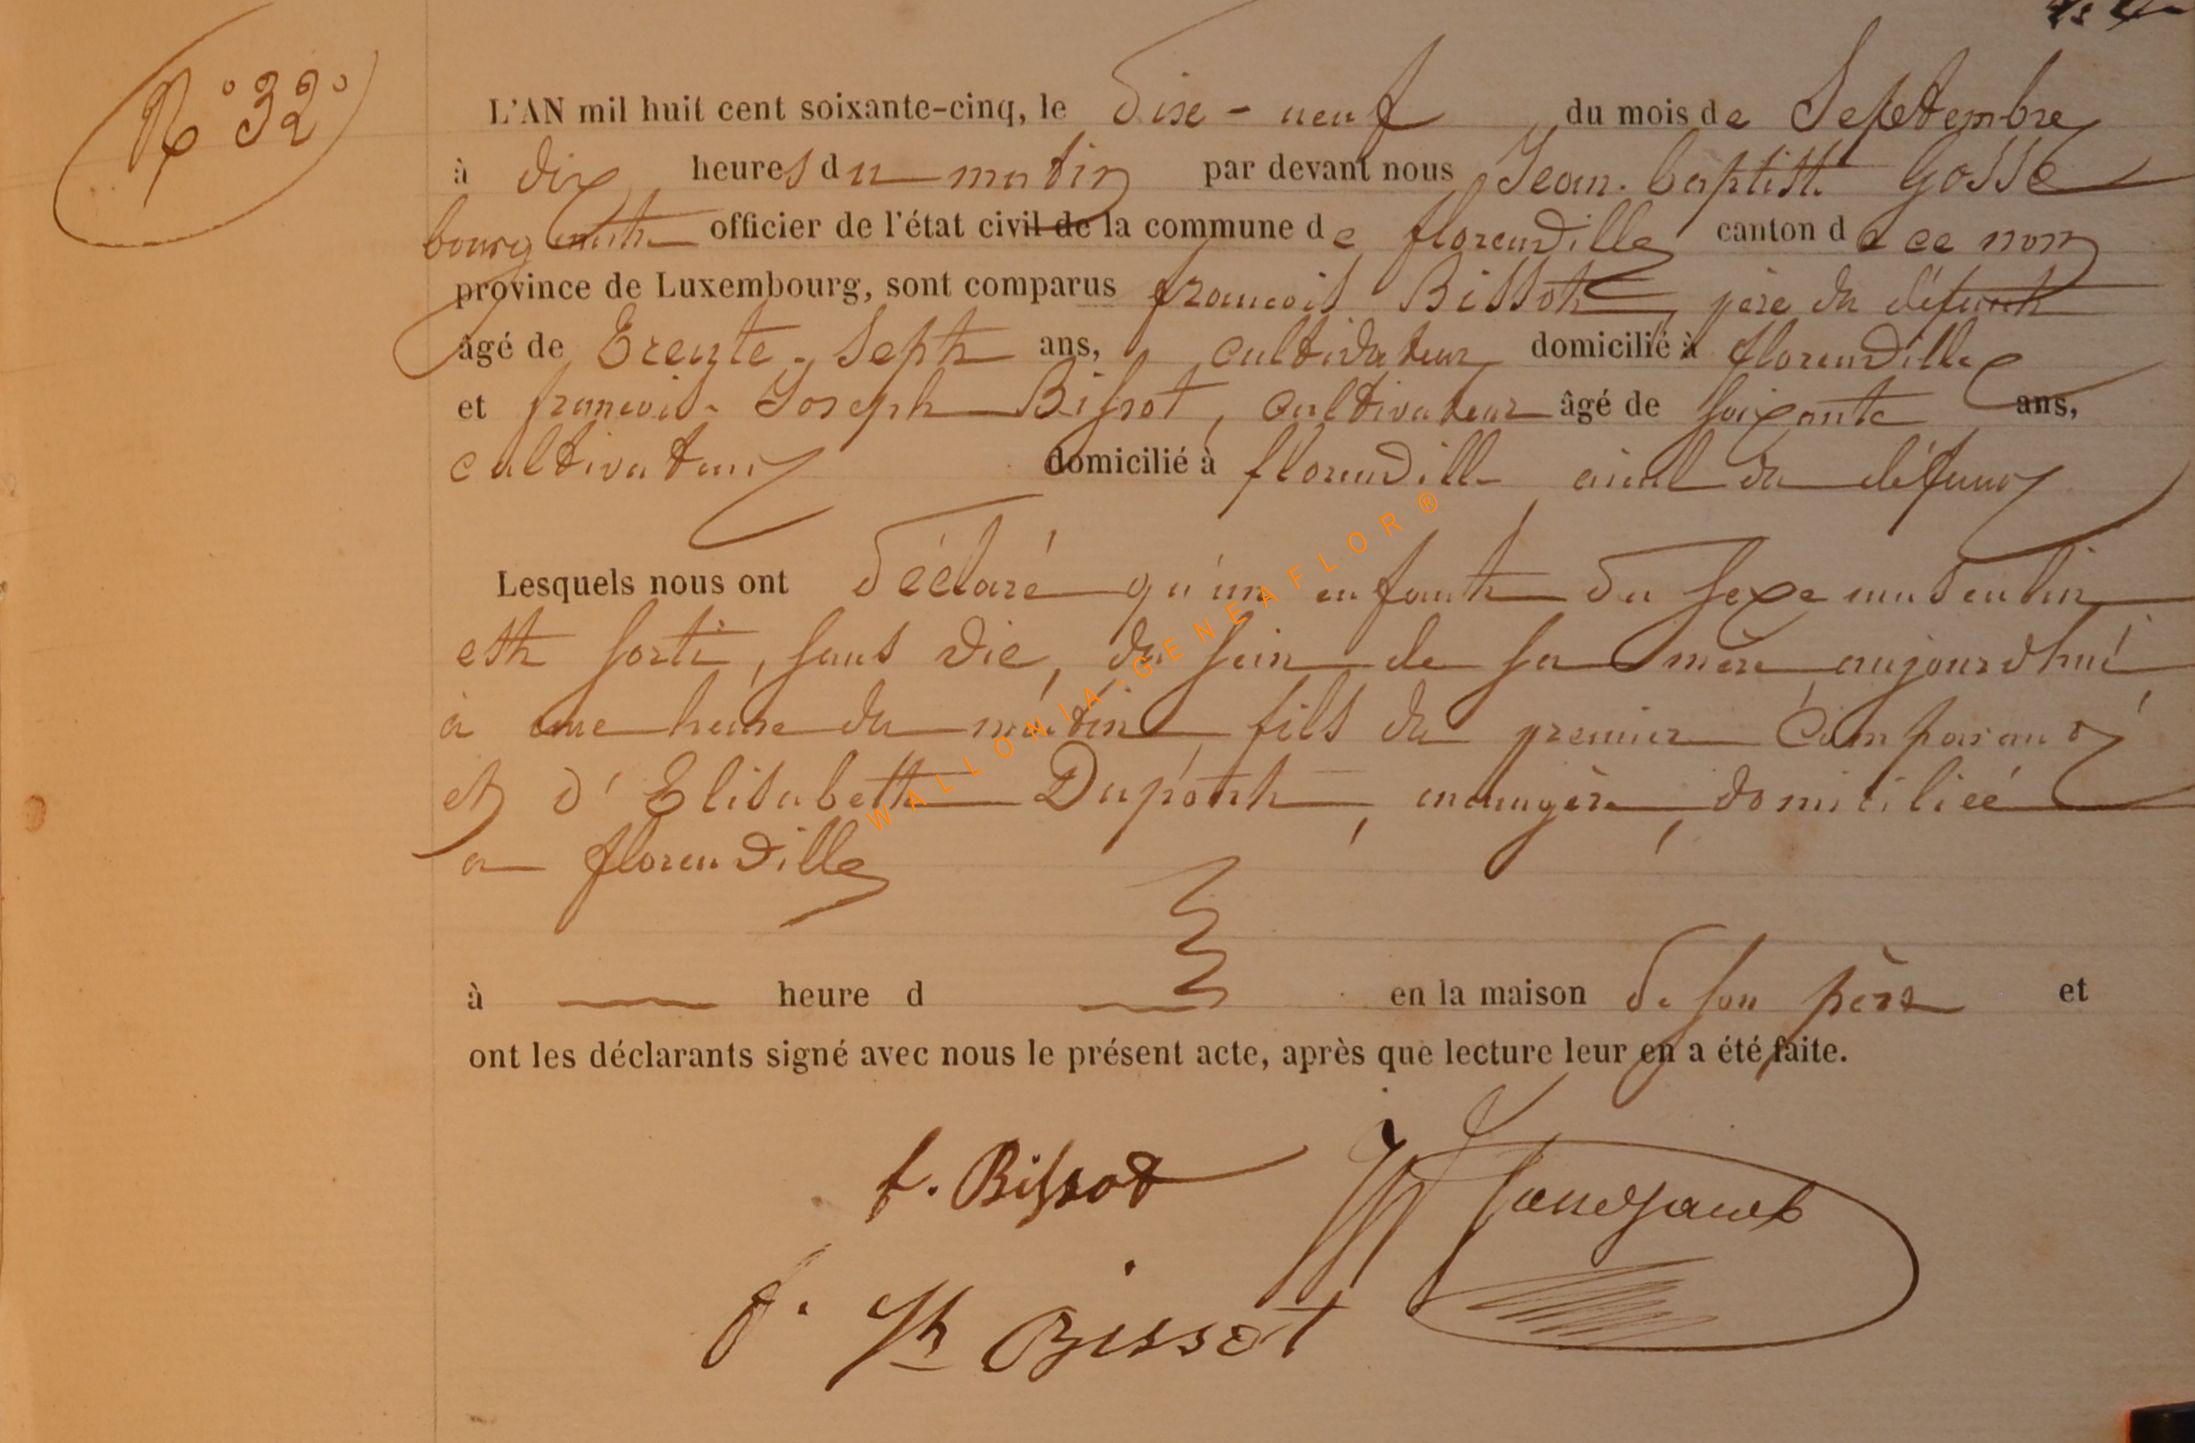 N° 32
L'AN mil huit cent soixante-cinq, le dix-neuf du mois de Septembre
à dix heures du matin par devant nous Jean-baptiste Gosse
bourgmestre officier de l'état civil de la commune de florenville canton de ce nom
province de Luxembourg, sont comparus francois Bissot, père du défunt
âgé de trente-sept ans, cultivateur domicilié à florenville
et francois-Joseph Bissot, cultivateur âgé de soixante ans,
cultivateur domicilié à florenville aieul du défunt
Lesquels nous ont déclaré qu'un enfant du sexe masculin
est sorti, sans vie, du sein de sa mère aujourd'hui
à une heure du matin, fils du premier comparant
et d'Elisabeth Dupont, ménagère, domiciliée
a florenville
à heure d en la maison de son père et
ont les déclarants signé avec nous le présent acte, après que lecture leur en a été faite.
f. Bissot
f. Jh Bissot
WALLONIA-GENEAFLOR®